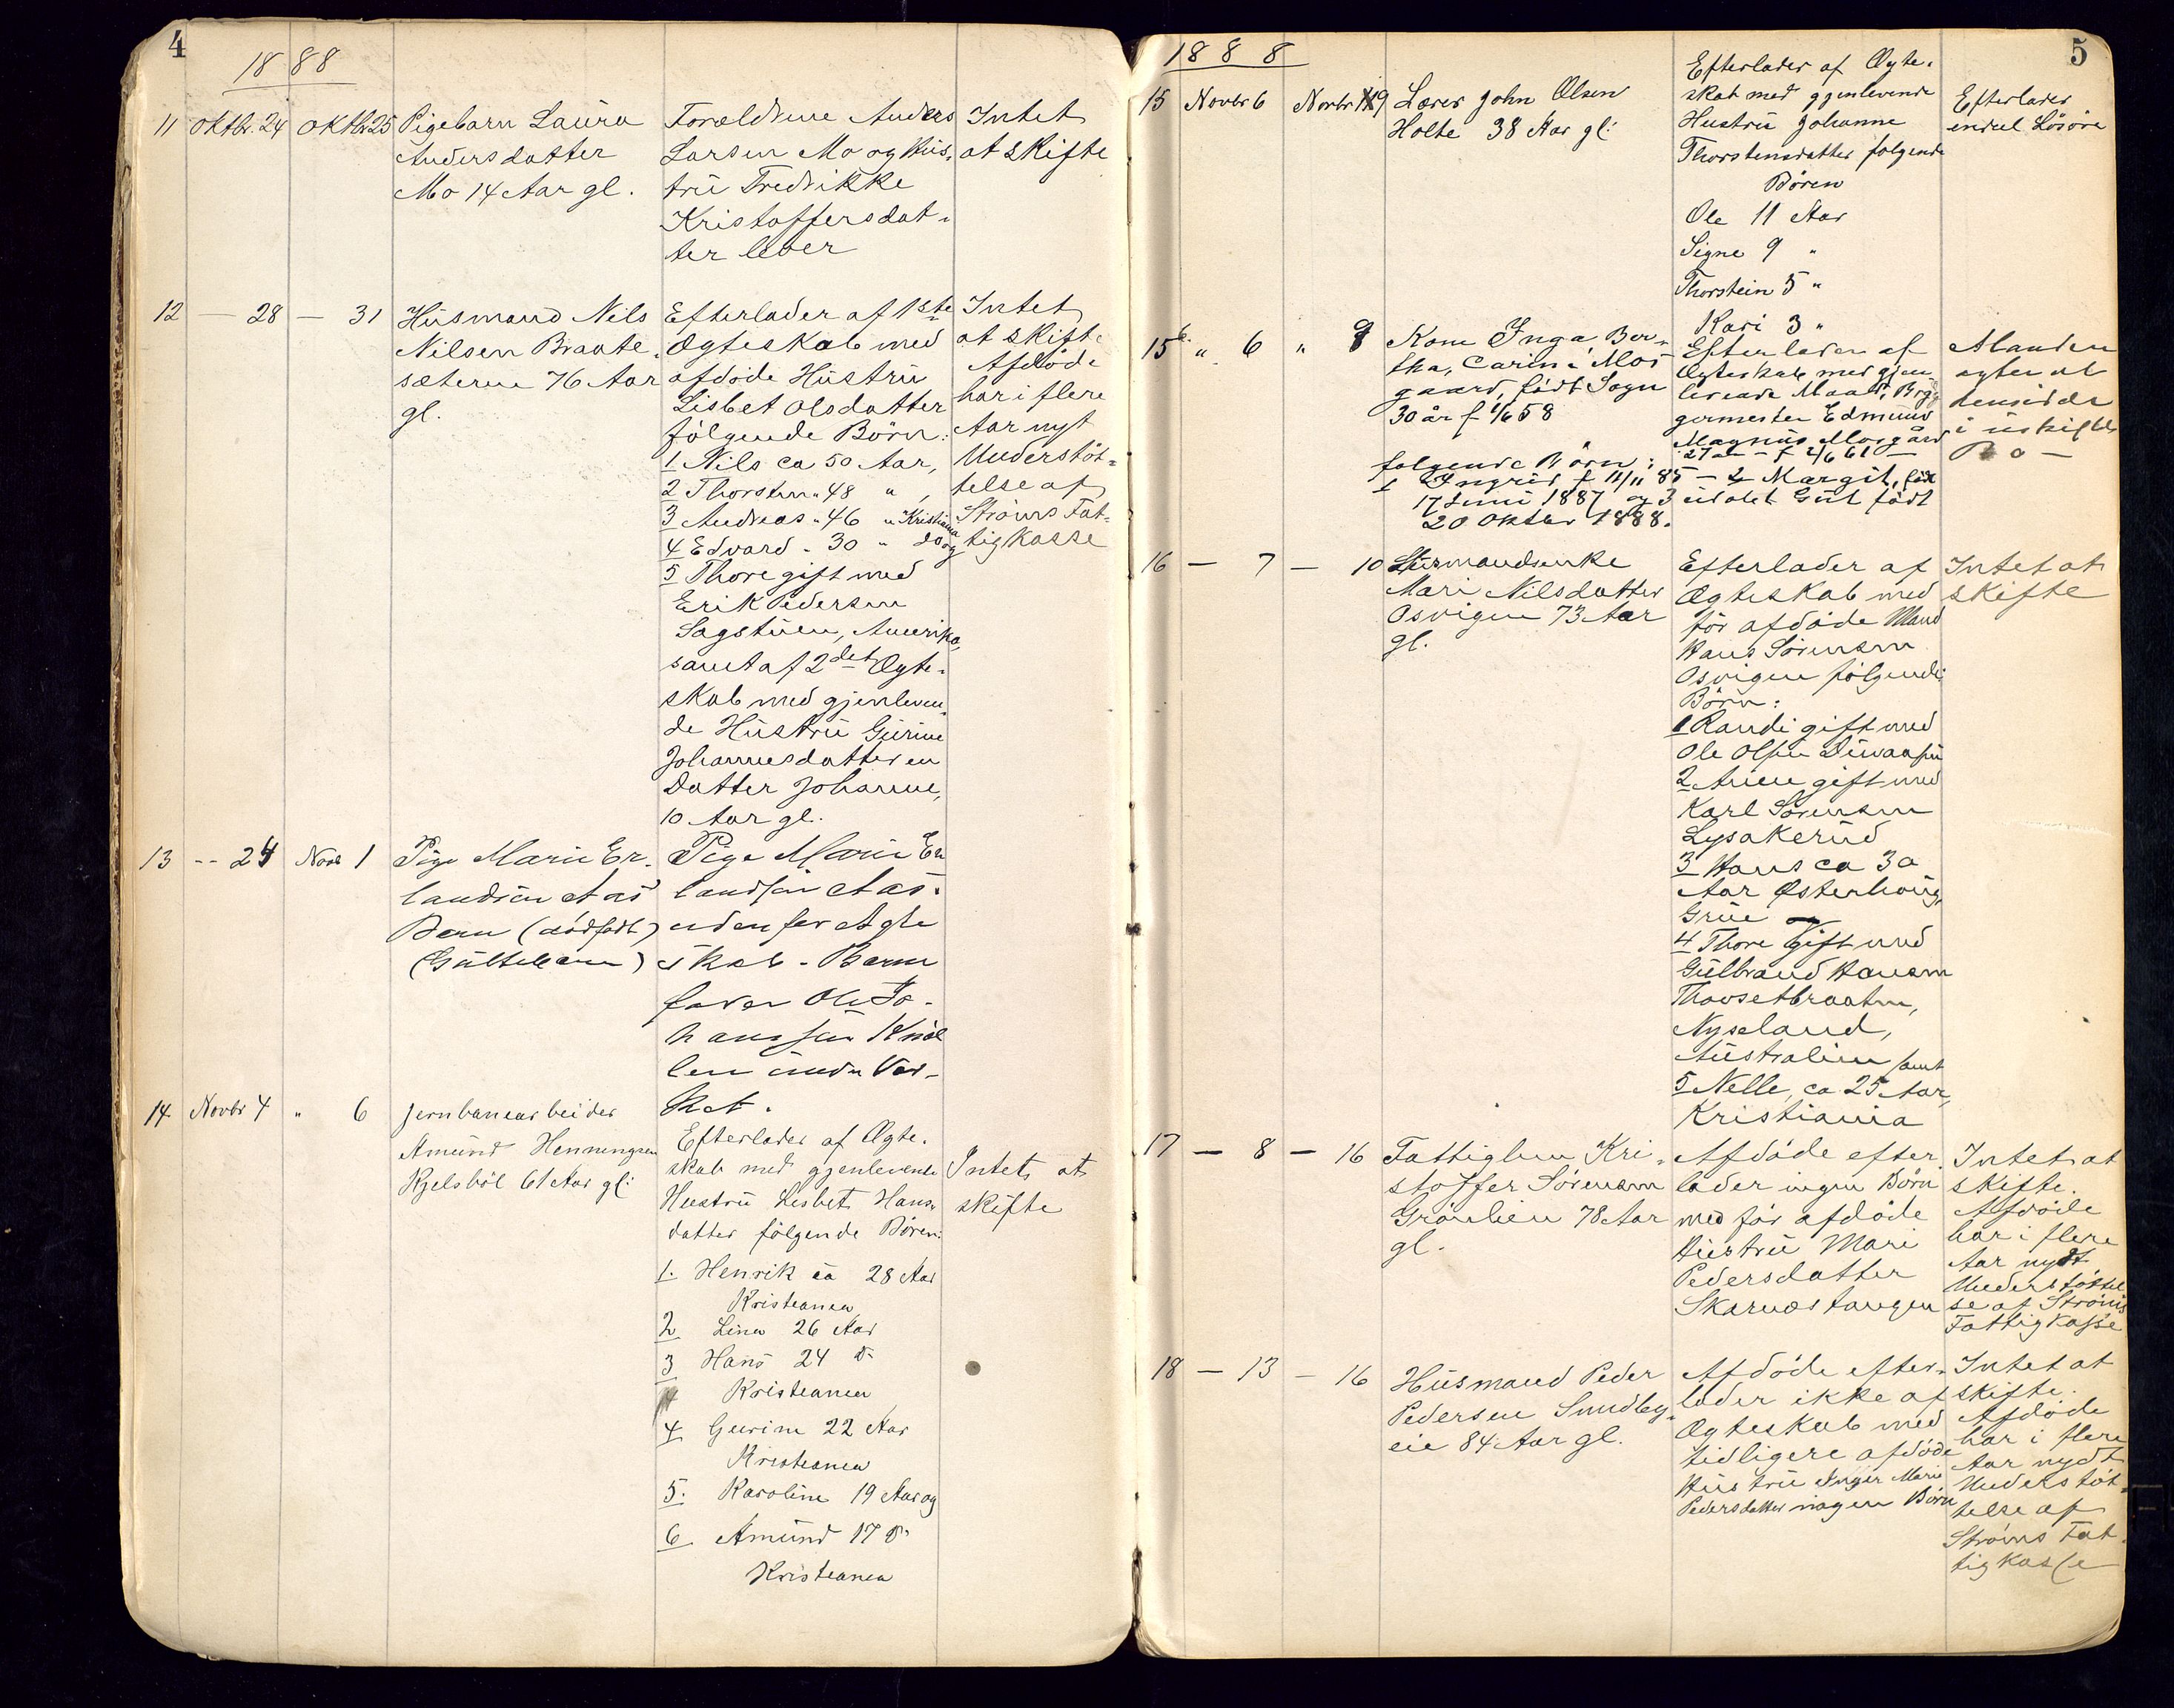 4
1888
11 Oktbr. 24 Oktbr 25 Pigebarn Laura
Andersdatter
Mo 14 Aar gl.
Forældrene Anders
Larsen Mo og Hus-
tru Fredrikke
Kristoffersdat-
ter lever
Intet
at skifte
12 — 28 — 31 Husmand Nils
Nilsen Braate-
sæterne 76 Aar
gl.
Efterlader af 1ste
Ægteskab med
afdøde Hustru
Lisbet Olsdatter
følgende Börn:
1 Nils ca 50 Aar,
2 Thorsten " 48 " ,
3 Andreas " 46 " Kristiania
4 Edvard " 30 " do og
5 Thore gift med
Erik Pedersen
Sagstuen, Amerika,
samt af 2det Ægte-
skab med gjenleven-
de Hustru Gurine
Johannesdatter en
Datter Johanne,
10 Aar gl.
Intet
at skifte
Afdöde
har i flere
Aar nyt
Understöt-
telse af
Ströms Fat-
tigkasse
13 -- 24 Novb 1 Pige Marie Er-
landsen Aas
Barn (dødfødt)
(Guttebarn)
Pige Marie Er
landsen Aas.
udenfor Ægte
skab - Barne
faver Ole Jo-
hansen
len under Vær-
ket.
14 Novbr 4 " 6 Jernbanearbeider
Amund Henningsen
Kjelsböl 61 Aar gl:
Efterlader af Ægte-
skab med gjenlevende
Hustru Lisbet Hans-
datter följende Børen:
1. Henrik ca 28 Aar
Kristeania
2 Lina 26 Aar
3 Hans 24 do
Kristeania
4 Gurine 22 Aar
Kristeania
5. Karoline 19 Aar og
6. Amund 17 do
Kristeania
Intet at
skifte
5
1888
15 Novbr 6 Novbr 19 Lærer John Olsen
Holte 38 Aar gl:
Efterlader af Ægte-
skab med gjenlevende
Hustru Johanne
Thorstensdatter folgende
Bören
Ole 11 Aar
Signe 9 "
Thorstein 5 "
Kari 3 "
Efterlader
endel Lösöre
15b. " 6 " 8 Kone Inga Ber-
tha, Carine Mos
gaard, født Sogn
30 år f 1/6 58
Efterlader af
Ægteskab med gjen
levende Mand, Bryg
germester Edmund
Magnus Mosgård
27 år - f 2/6 61 —
folgende Børn:
1 Ingrid f 11/11 85 — 2 Margit, fød
17 Juni 1887 og 3 udøbt Gut født
20 Oktbr 1888.
Manden
agter at
hensidde
i uskiftet
Bo —
16 — 7 — 10 Styrmandsenke
Mari Nilsdatter
Osvigen 73 Aar
gl.
Efterlader af
Ægteskab med
för afdöde Mand
Hans Sörensen
Osvigen fölgende
Börn:
1 Randi gift med
Ole Olsen
2 Anne gift med
Karl Sörensen
Lysakerud
3 Hans ca 30
Aar Østerhaug,
Grue og
4 Thore gift med
Gulbrand Hansen
Thorsetbraaten,
Nyseland,
Australien samt
5 Nelle, ca 25 Aar,
Kristiania
Intet at
skifte
17 — 8 — 16 Fattiglem Kri-
stoffer Sörensen
Grönlien 78 Aar
gl.
Afdöde efter-
lader ingen Börn
med för afdöde
Hustru Mari
Pedersdatter
Skarnæstangen
Intet at
skifte.
Afdöde
har i flere
Aar nydt
Understöttel
se af Ströms
Fattigkasse
18 — 13 — 16 Husmand Peder
Pedersen Sundby-
eie 84 Aar gl.
Afdöde efter-
lader ikke af
Ægteskab med
tidligere afdøde
Hustru Inger Marie
Pedersdatter nogen Börn
Intet at
skifte.
Afdöde
har i flere
Aar nydt
Understöt-
telse af
Ströms Fat-
tigkasse